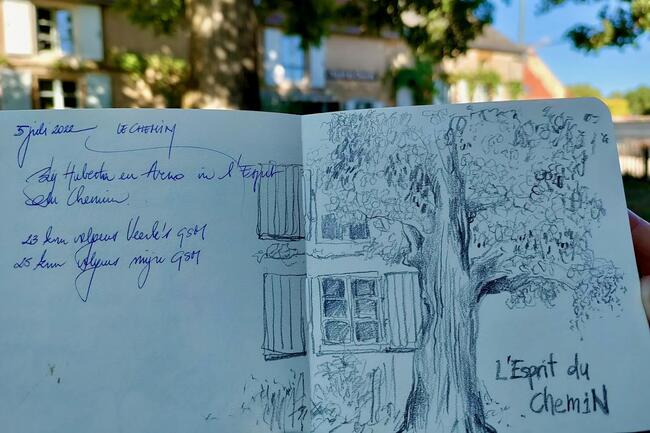 5 juli 2022 LE CHEMIN
By Huberta en Arno in l'Esprit
du Chemin.
23 km volgens Veerle's GSM
25 km volgens mijn GSM
L'Esprit du
CHEMIN